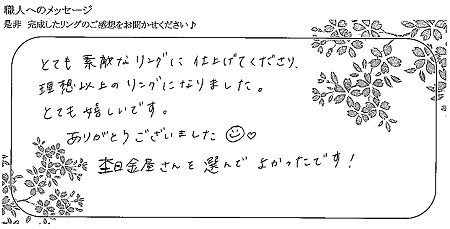 職人へのメッセージ
是非 完成したリングのご感想をお聞かせください♪
とても素敵なリングに仕上げてくださり、
理想以上のリングになりました。
とても嬉しいです。
ありがとうございました☺♡
杢目金屋さんを選んでよかったです！